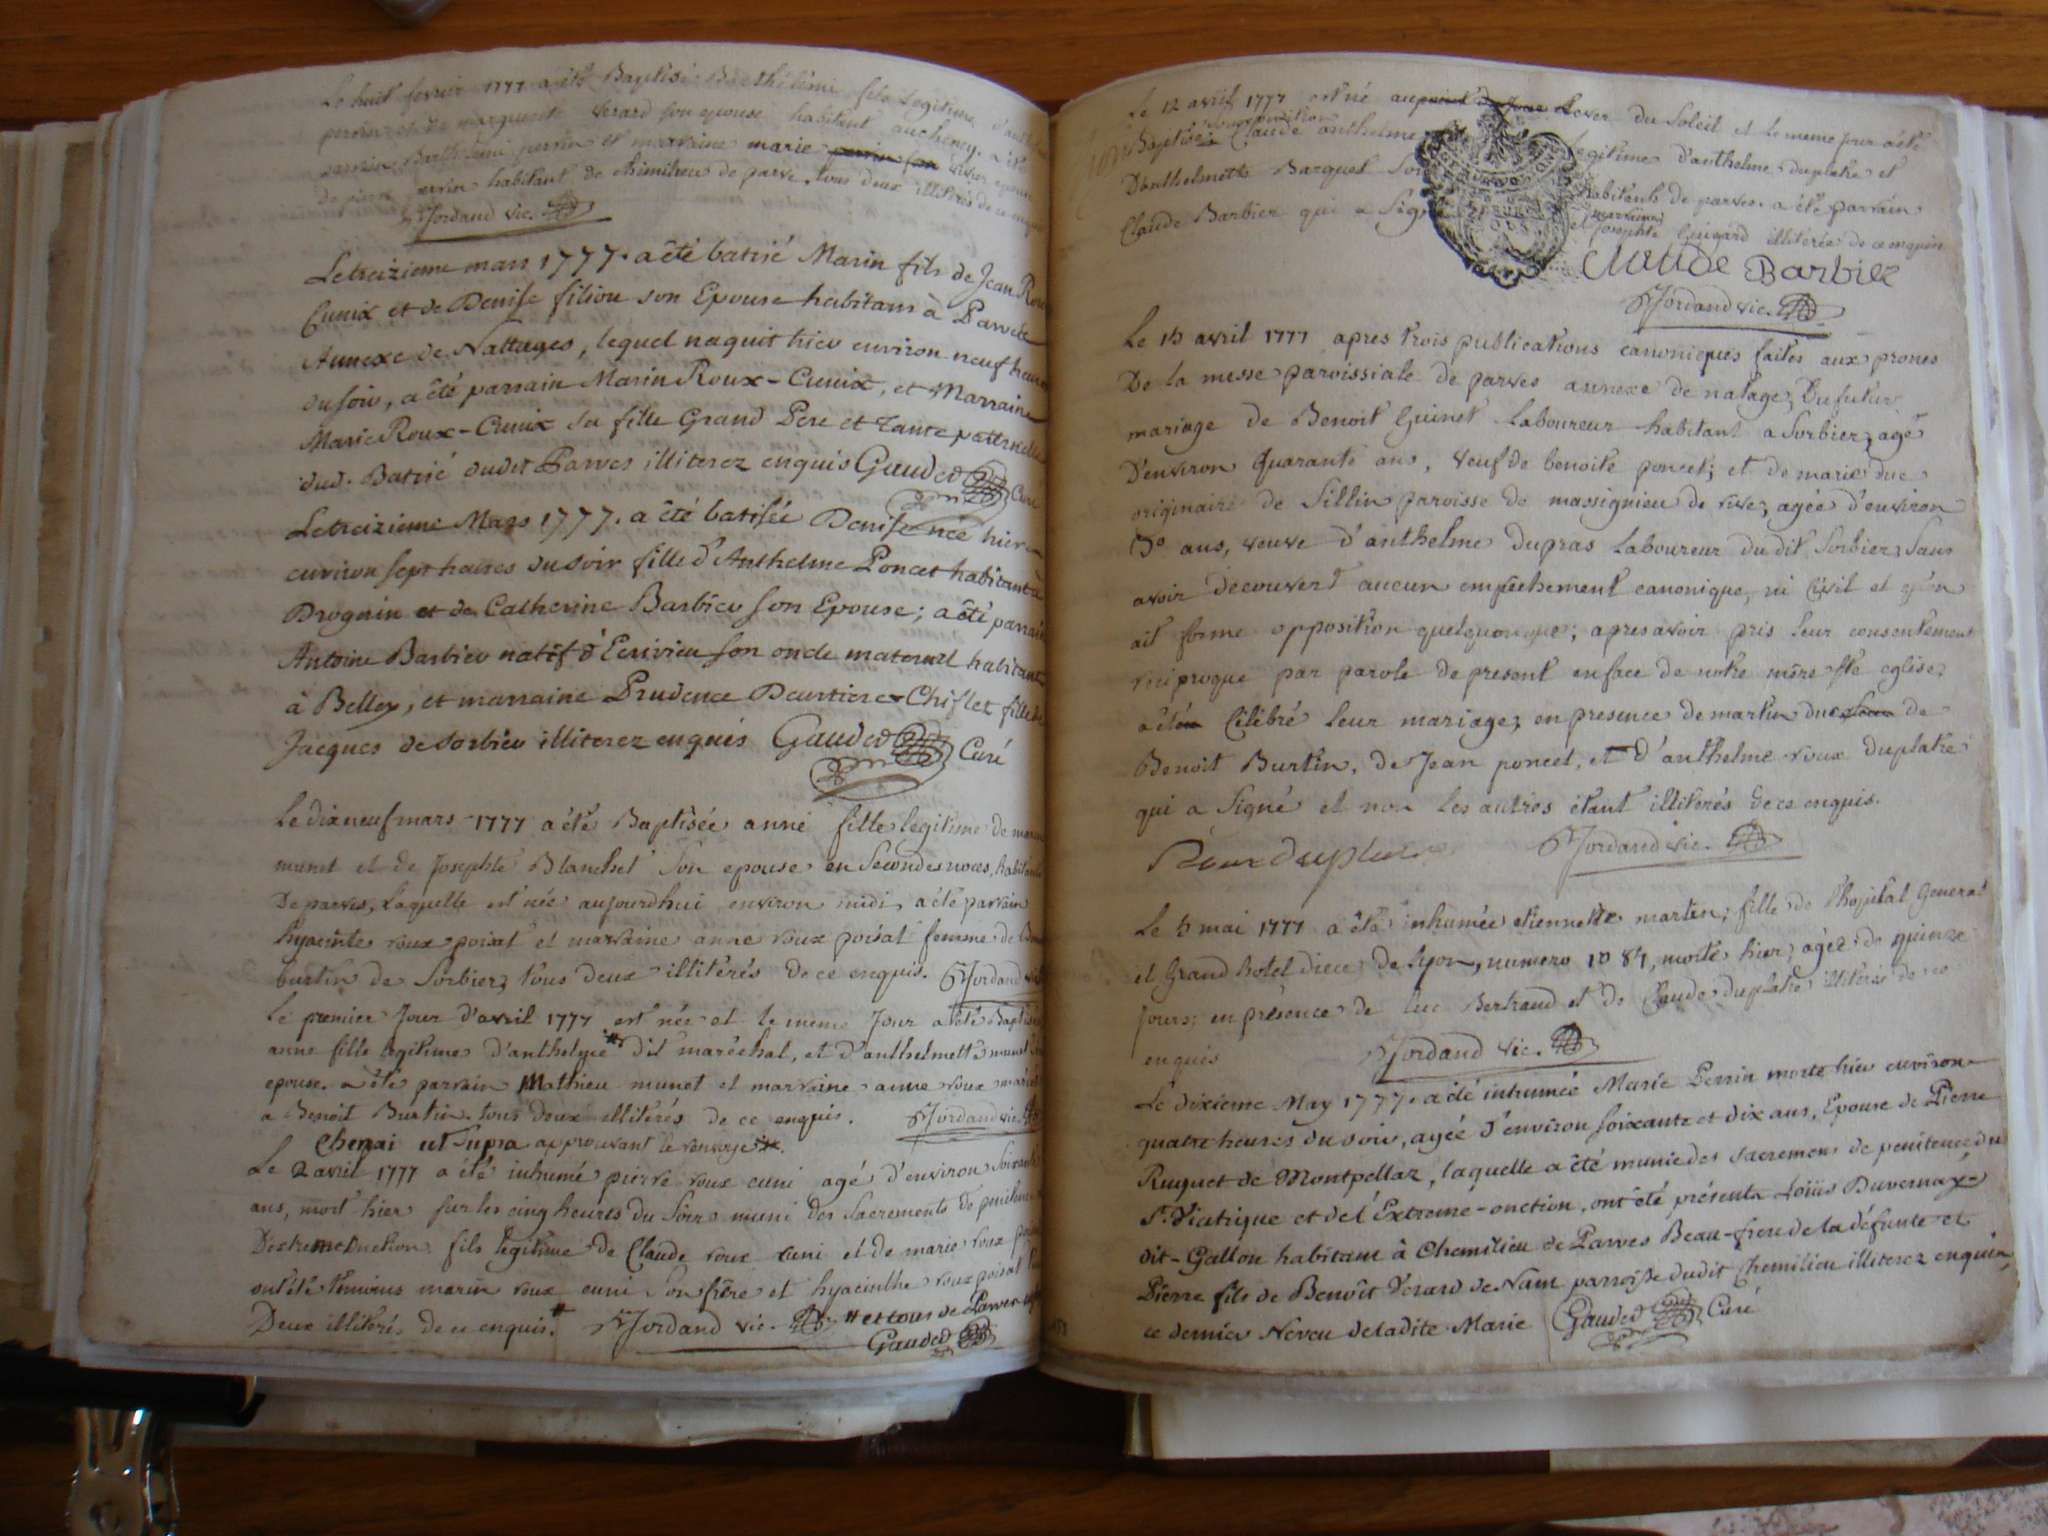 Le huit fevrier 1777 a été Baptisé Barthelemi fils legitime d'anth
perrin et de marguerite Verard son epouse habitant au cheney. a été
parrain Barthelemi perrin et marraine marie perrin fem epouse
de pierre perrin habitant de chimilieu de parve. tous deux illiterés de ce enquis
Jordand vic.
Le treizieme mars 1777. a êté batisé Marin fils de Jean Roux
Cunix et de Denise filiou son Epouse habitans à Parves
Annexe de Nattages, lequel naquit hier environ neuf heures
du soir, a êté parrain Marin Roux-Cunix, et Marraine
Marie Roux-Cunix sa fille Grand Pere et Tante paternelle
dud. Batisé dudit Parves illiterez enquis Gauded Curé
Le treizieme Mars 1777. a été batisée Denise née hier
environ sept heures du soir fille d'Anthelme Poncet habitant à
Drognin et de Catherine Barbier son Epouse; a êté parrain
Antoine Barbier natif d'Ecrivieu son oncle maternel habitant
à Belley, et marraine Prudence Chiflet fille de
Jacques de Sorbieu illiterez enquis Gauded Curé
Le dix neuf mars 1777 a été Baptisée anne fille legitime de
munet et de Josephte Blanchet son epouse en secondes noces, habitants
De parves, Laquelle est née aujourdhui environ midi, a été parrain
hyacinte roux poisat et marraine anne roux poisat femme de
burtin de Sorbier, tous deux illitérés de ce enquis. Jordand vic
Le premier Jour d'avril 1777 est née et le meme Jour a été Baptisée
anne fille legitime d'anthelme # dit maréchal, et d'anthelmette munet son
epouse. a été parrain Matthieu munet et marraine anne roux mariée
a Benoit Burtin. tous deux illitérés de ce enquis. Jordand vic.
# Chenai ut supra approuvant le renvoye #.
Le 2 avril 1777 a été inhumé pierre roux cuni agé d'environ soixante
ans, mort hier sur les cinq heures du Soir muni des Sacrements de penitence
D'extrem onction, fils legitime de Claude roux cuni et de marie roux
ont été temoins marin roux cuni son frère et hyacinthe roux poisat
Deux illiterés de ce enquis. # Jordand vic. # et tous de Parves
Gauded
Le 12 avril 1777 est né au point du Jour Lever du Soleil et le meme jour a été
Baptisé sous condition Claude anthelme legitime d'anthelme duplatre et
D'anthelmette Barquet Son habitants de parves. a été parrain
Claude Barbier qui a Sig et marraine Josephte Guigard illiterée de ce enquis
Claude Barbier
Jordand vic.
Le 15 avril 1777 apres trois publications canoniques faites aux prones
De la messe paroissiale de parves annexe de natage, Du futur
mariage de Benoit Guinet Laboureur habitant a Sorbier, agé
D'environ Quarante ans, veuf de benoite poncet; et de marie duc
originaire de Sillin paroisse de massignieu de rive, agée d'environ
ans, veuve d'anthelme dupras Laboureur dudit Sorbier, sans
avoir decouvert aucun empêchement canonique, ni Civil et qu'on
ait formé opposition quelquonque; apres avoir pris leur consentement
reciproque par parole de present en face de notre mère ste eglise,
a été Célébré leur mariage, en presence de martin duc de
Benoit Burtin, de Jean poncet, et d'anthelme roux duplatre
qui a Signé et non les autres étant illiterés de ce enquis.
Roux duplatre Jordand vic.
Le 5 mai 1777 a été inhumée etiennette martin, fille de l'hopital General
et Grand hotel dieu de Lyon, numero 1081, morte hier, agée de quinze
jours, en presence de luc Bertrand et de Claude duplatre illiterés de ce
enquis Jordand vic.
Le dixieme May 1777. a été inhumée Marie Perrin morte hier environ
quatre heures du soir, agée d'environ soixante et dix ans, Epouse de Pierre
Ruquet de Montpellaz, laquelle a êté munie des sacremens de penitence du
St. Viatique et de l'Extreme-onction, ont êté présents Loüis Duvernay
dit-Gallou habitant à Chemilieu de Parves Beau-frere de la défunte et
Pierre fils de Benoît Verard de Nant parroisse dudit Chemilieu illiterez enquis,
ce dernier Neveu de ladite Marie Gauded Curé